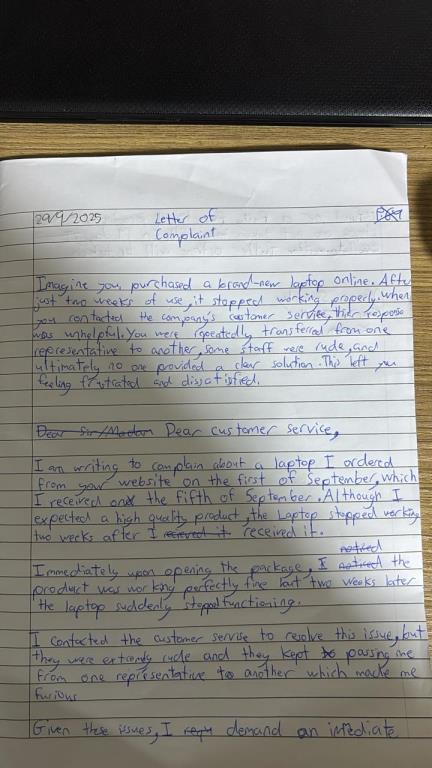 29/9/2025 Letter of
Complaint
Imagine you purchased a brand-new laptop online. After
just two weeks of use, it stopped working properly. When
you contacted the company's customer service, their response
was unhelpful. You were repeatedly transferred from one
representative to another, some staff were rude, and
ultimately no one provided a clear solution. This left you
feeling frustrated and dissatisfied.
Dear Sir/Madam Dear customer service,
I am writing to complain about a laptop I ordered
from your website on the first of September, which
I received on the fifth of September. Although I
expected a high quality product, the Laptop stopped working
two weeks after I received it.
Immediately upon opening the package, I noticed the
product was working perfectly fine but two weeks later
the laptop suddenly stopped functioning.
I contacted the customer servise to resolve this issue, but
they were extremly rude and they kept passing me
from one representative to another which made me
furious
Given these issues, I demand an imediate